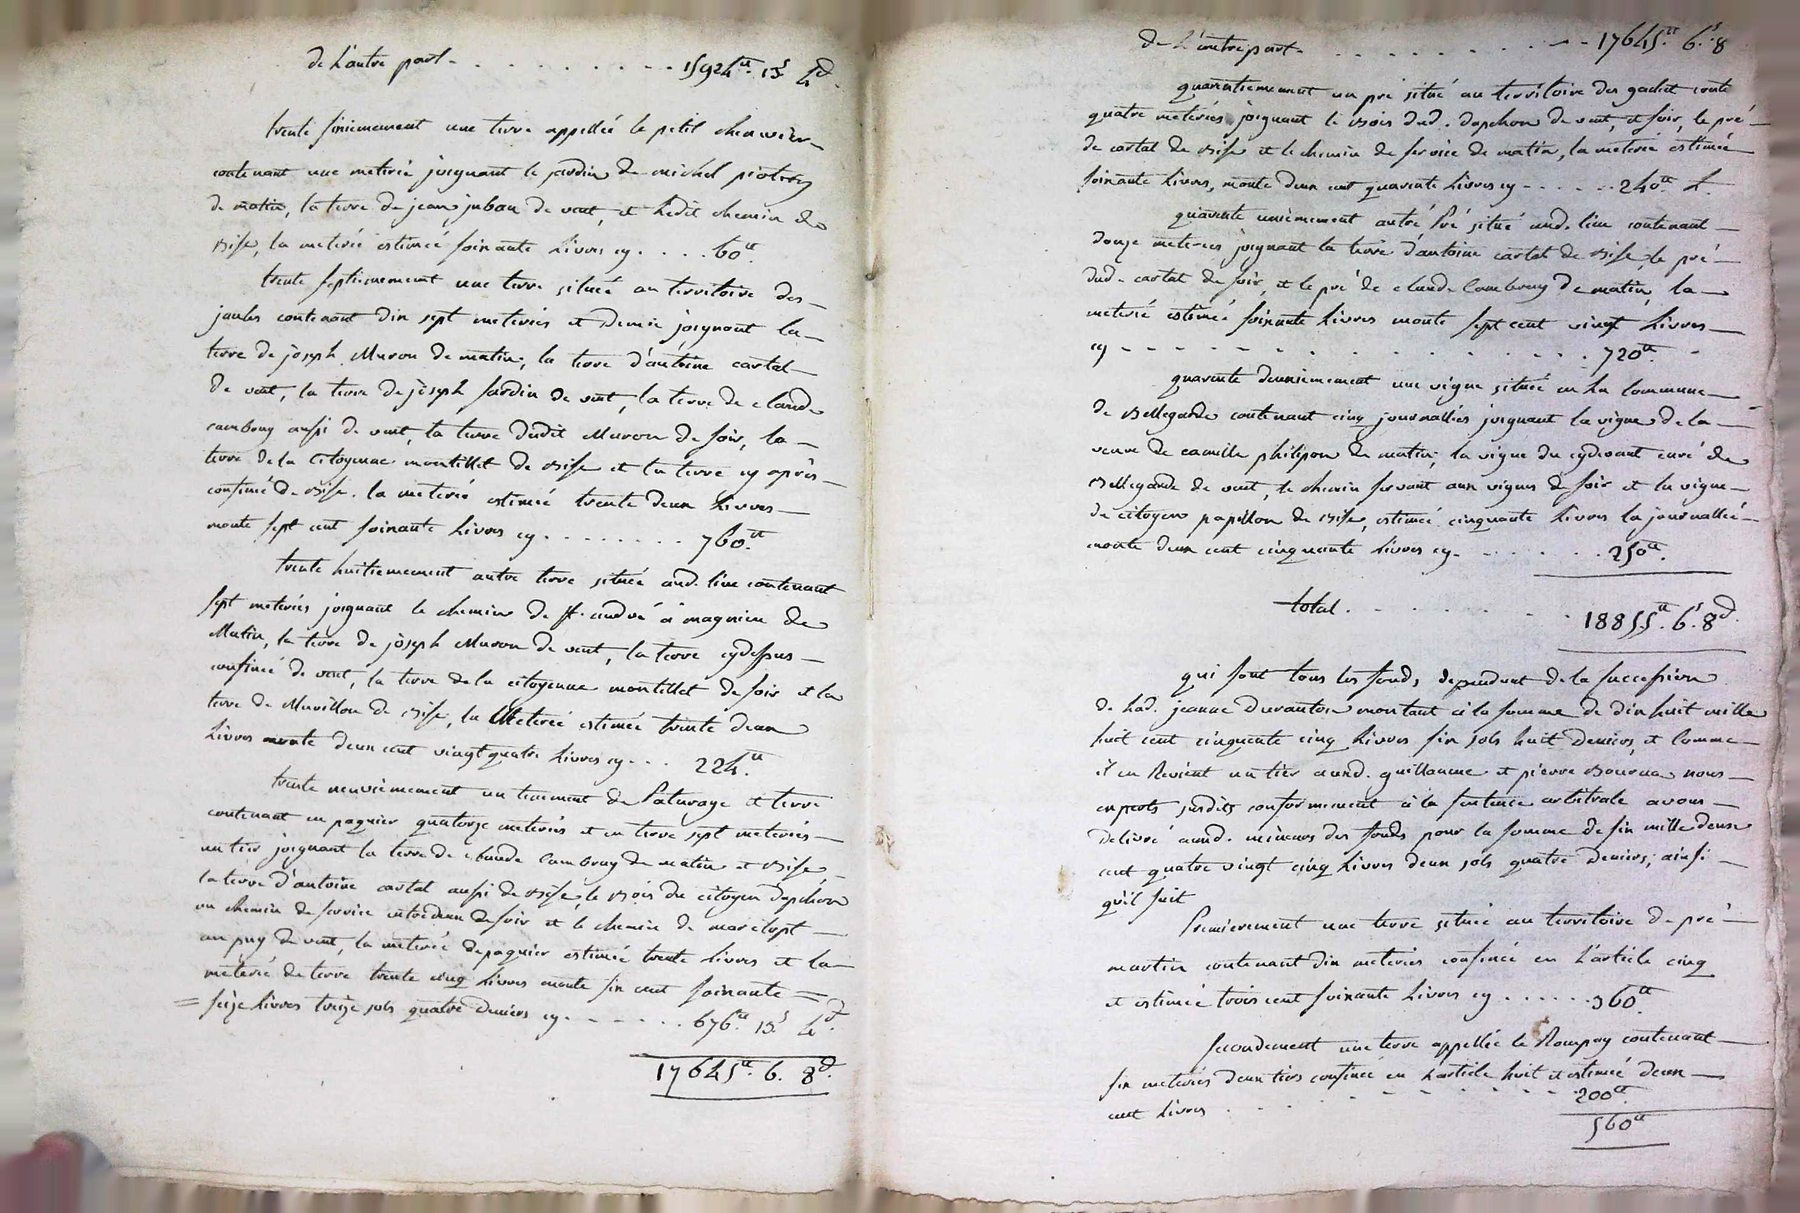 de l'autre part - . . . . . . . . - - - 15924tt. 13s 4d.
trente sixiemement une terre appellée le petit chenevier
contenant une meterie joignant le jardin de michel
de matin, la terre de jean juban de vent, et ledit chemin de
bise, la meterié estimée soixante livres cy . . . . 60tt.
trente septiemement une terre située au territoire des
jaules contenant dix sept meteriés et demie joignant la
terre de joseph Muron de matin, la terre d'antoine cartal
de vent, la terre de joseph jardin de vent, la terre de claude
cambray aussi de vent, la terre dudit Muron de soir, la
terre de la citoyenne montillet de bise et la terre cy après
confinée de bise. la meterié estimée trente deux livres
monte sept cent soixante livres cy . . . . . . . . 760.tt
trente huitiemement autre terre située aud. lieu contenant
sept meteriés joignant le chemin de st. andré à magnieu de
Matin, la terre de joseph Muron de vent, la terre cydessus
confinée de vent, la terre de la citoyenne montillet de soir et la
terre de Mivillon de bise, la Meterié estimée trente deux
livres monte deux cent vingt quatre livres cy - . . . 224.tt
trente neuviemement un tenement de Paturage et terre
contenant en paquier quatorze meteriés et en terre sept meteriés
un tier joignant la terre de claude Cambray de matin et bise
la terre d'antoine cartal aussi de bise, le bois du citoyen Dapchon
un chemin de service entredeux de soir et le chemin de marclopt
au puy de vent, la meterié de paquier estimée trente livres et la
meterié de terre trente cinq livres monte six cent soixante
= seize livres treize sols quatre deniers cy - - - - - . . . 676.tt 13.s 4.d
17645tt. 6. 8d.
de L'autre part - . . . . . . . . - - - 17645.tt 6.s 8
quarantiemement un pré situé au territoire des gachet conte
quatre meteriés joignant le bois dud. dapchon de vent, et soir, le pré
de cartal de bise et le chemin de service de matin, la meterié estimée
soixante livres, monte deux cent quarente livres cy - - . . . . 240tt
quarente uniemement autre Pré situé aud. lieu contenant
douze meteries joignant la terre d'antoine cartal de bise, le pré
dud. cartal de soir, et le pré de claude Cambray de matin, la
meterié estimée soixante livres monte sept cent vingt livres
cy - - - - - . . . . . . . . . . 720tt
quarente deuxiemement une vigne située en la Commune
de Bellegarde contenant cinq journallées joignant la vigne de la
veuve de camille philipon de matin, la vigne du cydevant curé de
Bellegarde de vent, le chemin servant aux vignes de soir et la vigne
de citoyen papillon de bise, estimée cinquante livres la journallée
monte deux cent cinquante livres cy - . . . . . . 250tt.
total . . . . . . . . . . 18855tt. 6s. 8d.
qui sont tous les fonds dependent de la succession
de lad. jeanne Duranton montant à la somme de dix huit mille
huit cent cinquante cinq livres six sols huit deniers, et Comme
il en Revient un tier auxd. guillaume et pierre Bournas nous
experts susdits conformement à la sentence arbitrale avons
delivré auxd. mineurs des fonds pour la somme de six mille deux
cent quatre vingt cinq livres deux sols quatre deniers, ainsi
qu'il suit
Premierement une terre située au territoire de pré
martin contenant dix meteries confinée en L'article cinq
et estimée trois cent soixante livres cy . . . . . . 360tt.
secondement une terre appellée le Rompay contenant
six meteriés deux tiers confinée en L'article huit et estimée deux
cent livres . . . . . . . . - - - - 200tt.
560tt